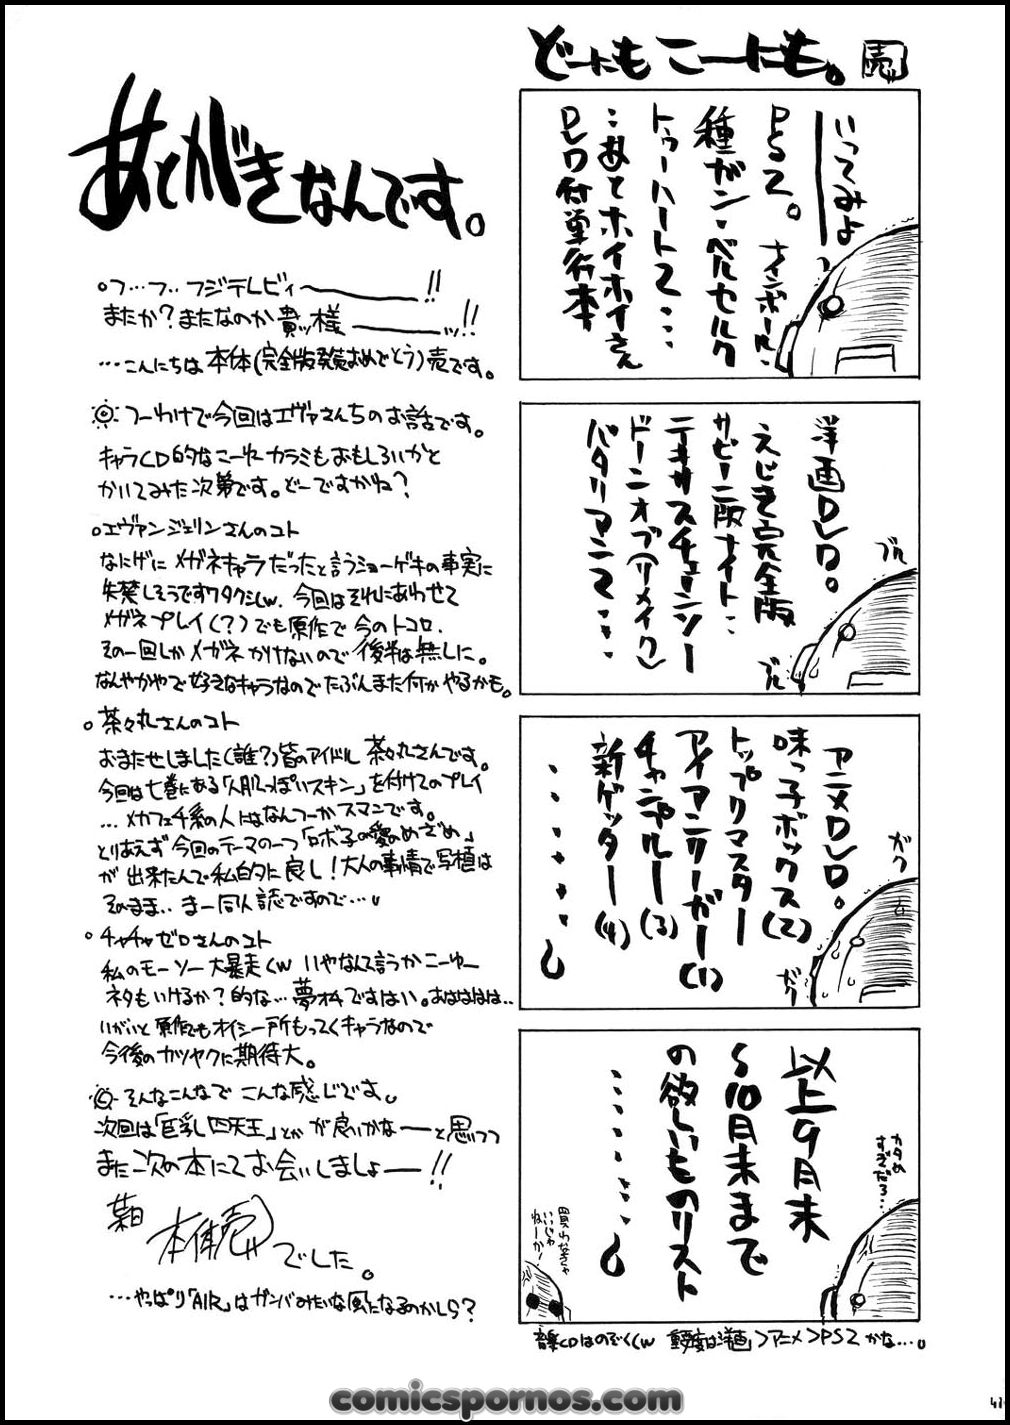 どーにもこーにも。 売
いってみよ
PS2。ナインボール・
種ガン・ベルセルク
トゥーハート2・・・
・・あとホイホイさん
DVD付単行本
洋画DVD。
えじき完全版
サビーニ版ナイト・・
テキサスチェーンソー
ドーンオブ(リメイク)
バタリアン2・・・・
ブル
ブル
アニメDVD。
味っ子ボックス(2)
トップリマスター
アイアンリーガー(1)
チャンプルー(3)
新ゲッター(4)
ガク
ガク
以上9月末
〜10月末まで
の欲しいものリスト
カタめ
すぎだろ・・
買わなきゃ
いいじゃ
ねーか!
音楽CDはのぞくw 重要度は洋画>アニメ>PS2かな・・・。
あとがきなんです。
○フ…フ‥フジテレビィ〜――――!!
またか?またなのか貴ッ様―――ッ!!
…こんにちは本体(完全版発売おめでとう)売です。
つーわけで今回はエヴァさんちのお話です。
キャラCD的なこーゆーカラミもおもしろいかと
かいてみた次第です。どーですかね?
○エヴァンジェリンさんのコト
なにげにメガネキャラだったと言うショーゲキの事実に
失禁しそうですワタクシw、今回はそれにあわせて
メガネプレイ(?)でも原作で今のトコロ、
その一回しかメガネかけないので後半は無しに。
なんやかやで好きなキャラなのでたぶんまた何かやるかも。
○茶々丸さんのコト
おまたせしました(誰?)皆のアイドル茶々丸さんです。
今回は七巻にある「人肌っぽいスキン」を付けてのプレイ
…メカフェチ系の人にはなんつーかスマンです。
とりあえず今回のテーマの一つ「ロボ子の愛のめざめ」
が出来たんで私的に良し!大人の事情で写植は
そのまま‥まー同人誌ですので…。
○チャチャゼロさんのコト
私のモーソー大暴走くw いやなんて言うかこーゆー
ネタもいけるか?的な…夢オチですはい。おはははは‥
いがいと原作でもオイシー所もってくキャラなので
今後のカツヤクに期待大。
そんなこんなでこんな感じです。
次回は「巨乳四天王」とかが良いかな――と思いつつ
また次の本にてお会いしましょ――!!
本体売
でした。
…やっぱり「AIR」はガンバみたいな風になるのかしら?
comicspornos.com
41